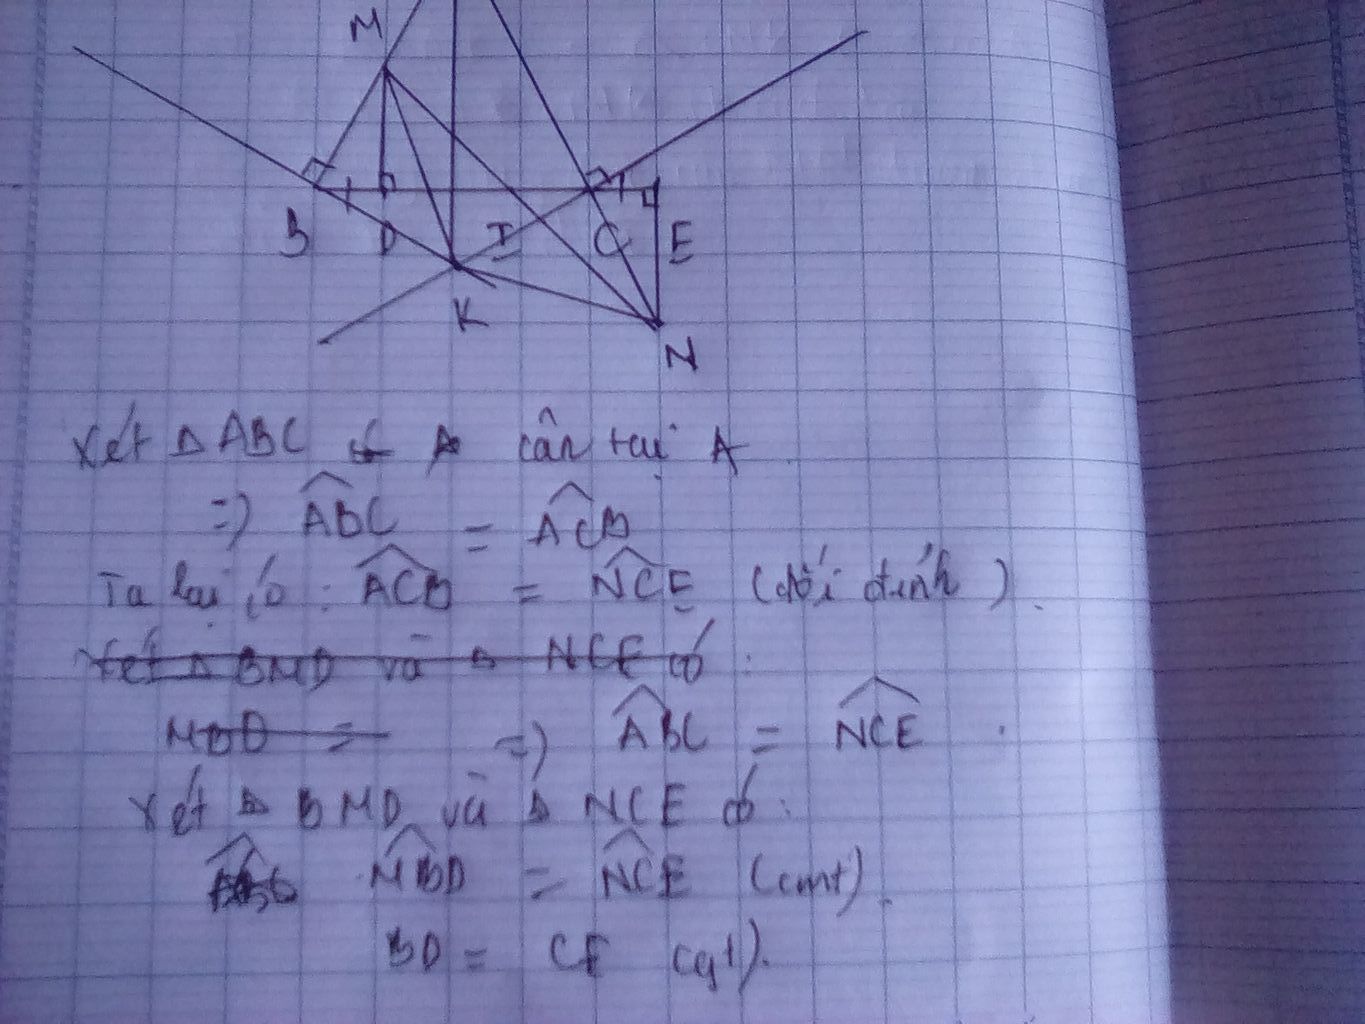 M
B D I C E
K
N
Xét Δ ABC cân tại A
=) ABC = ACB
Ta lại có : ACB = NCE (đối đỉnh).
Xét Δ BMD và Δ NCE có :
MBD =
=) ABC = NCE .
Xét Δ BMD và Δ NCE có :
MBD = NCE (cmt).
BD = CE (gt).